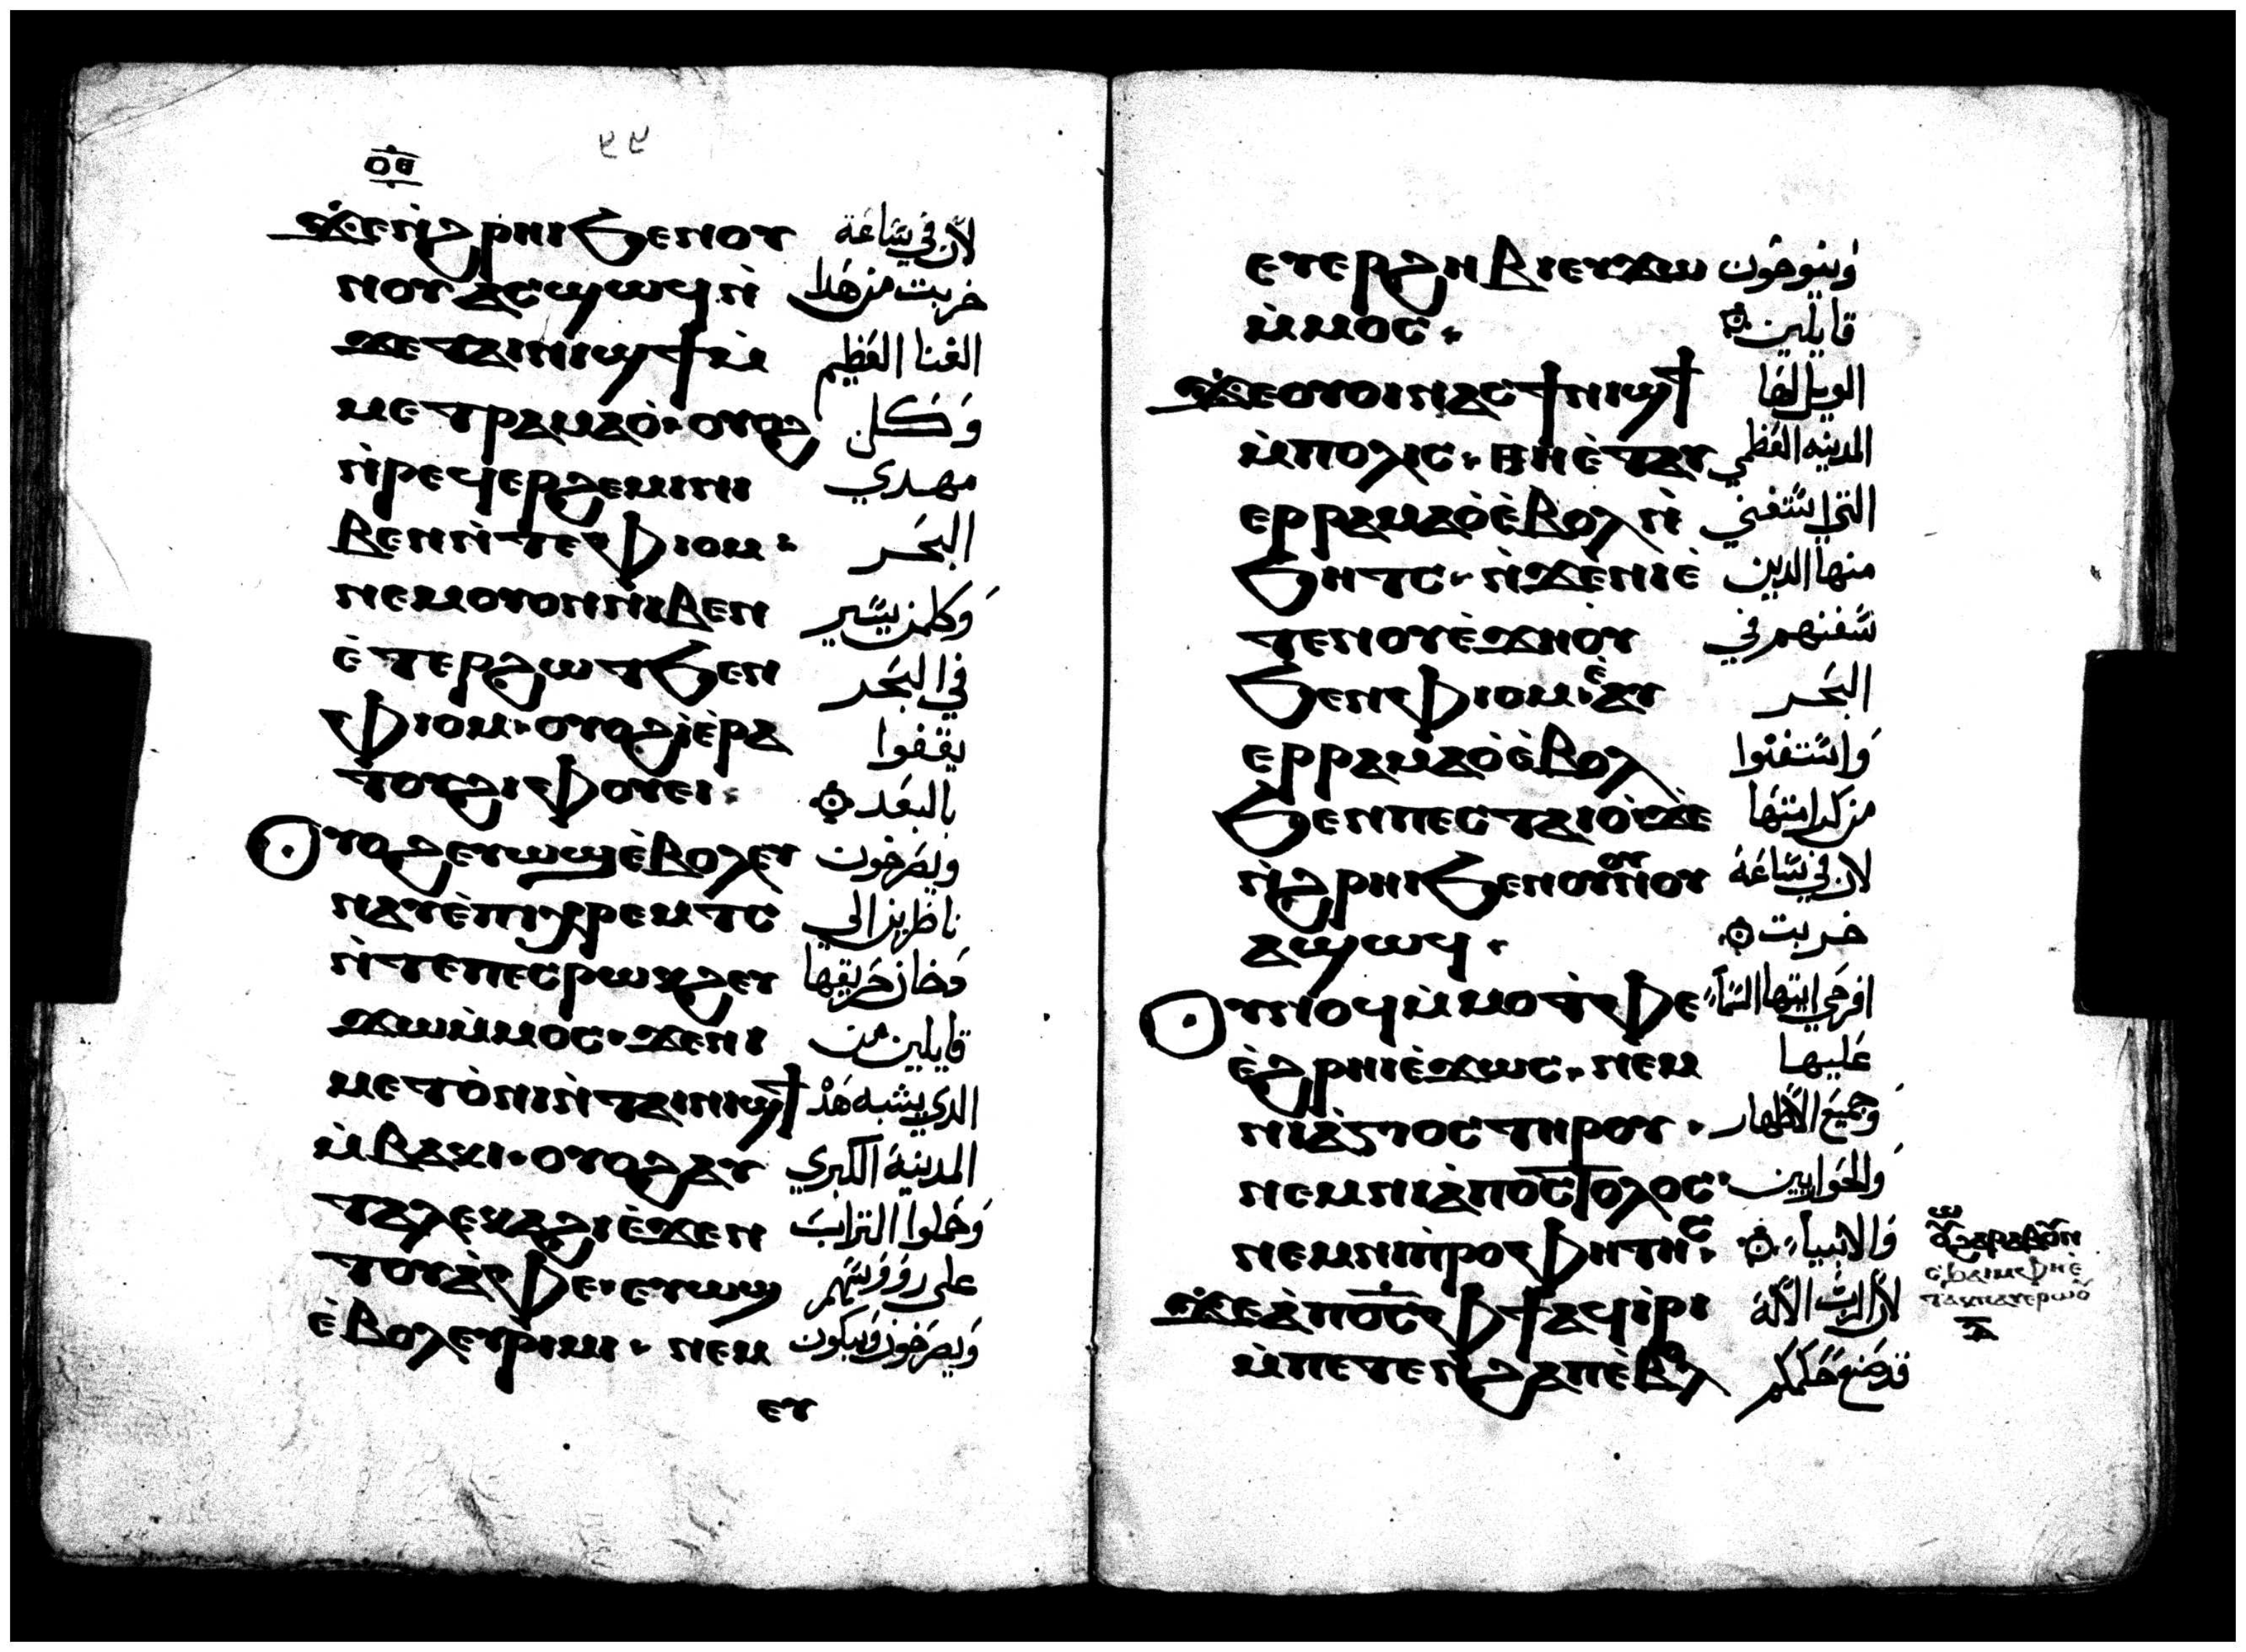 ϫⲉⲛ̀ϩⲣⲏⲓϧⲉⲛⲟⲩ لان في ساعة
ⲛⲟⲩⲁⲥϣⲱϥⲛ̀ خربت من هدا
ϫⲉⲧⲁⲓⲛⲓϣϯⲙ̀ الغنا العظيم
ⲙⲉⲧⲣⲁⲙⲁⲟ̀ⲟⲩⲟϩ وكل
ⲛ̀ⲣⲉϥⲉⲣϩⲉⲙⲓⲛⲓ مهدي
ⲃⲉⲛⲛ̀ⲧⲉⲫⲓⲟⲙ البحر
ⲛⲉⲙⲟⲩⲟⲛⲛⲓⲃⲉⲛ وكلمن يسير
ⲉ̀ⲧⲉⲣϩⲱⲧϧⲉⲛ في البحر
ⲫⲓⲟⲙ·ⲟⲩⲟϩⲓ̀ⲉ̀ⲣⲁ يقفوا
ⲧⲟⲩϩⲓⲫⲟⲩⲉⲓ بالبعد
ⲟⲩⲟϩⲉⲩⲱϣⲉ̀ⲃⲟⲗⲉⲩ ويصرخون
ⲛⲁⲩⲉ̀ⲡⲓⲭⲣⲉⲙⲧⲥ ناظرين الي
ⲛ̀ⲧⲉⲡⲉⲥⲣⲱⲕϩⲉⲩ دخان حريقها
ϫⲱⲙ̀ⲙⲟⲥ·ϫⲉⲛⲓ قايلين من
ⲙⲉⲧⲟ̀ⲛⲓⲛ̀ⲧⲁⲓⲛⲓϣϯ الدي يشبه هذ
ⲙ̀ⲃⲁⲕⲓ·ⲟⲩⲟϩⲁⲩ المدينة الكبري
ⲧⲁⲗⲉⲕⲁϩⲓⲉ̀ϫⲉⲛ وحملوا التراب
ⲧⲟⲩⲁ̀ⲫⲉ·ⲉⲩⲱϣ علي رووسهم
ⲉ̀ⲃⲟⲗⲉⲩⲣⲓⲙⲓ·ⲛⲉⲙ ويصرخون ويبكون
ⲉⲩ
ⲉⲩⲉⲣϩⲏⲃⲓⲉⲩϫⲱ وينوحون
ⲙ̀ⲙⲟⲥ· قايلين
ϫⲉⲟⲩⲟⲓⲛⲁⲥϯⲛⲓϣϯ الويل لها
ⲙ̀ⲡⲟⲗⲓⲥ·ⲑⲏⲉ̀ⲧⲁⲩ المدينه العظمي
ⲉⲣⲣⲁⲙⲁⲟ̀ⲉ̀ⲃⲟⲗⲛ̀ التي استغني
ϧⲏⲧⲥ·ⲛ̀ϫⲉⲛⲓⲉ̀ منها الدين
ⲧⲉⲛⲟⲩⲉ̀ϫⲏⲟⲩ سفنهم في
ϧⲉⲛⲫⲓⲟⲙ·ⲉ̀ⲁⲩ البحر
ⲉⲣⲣⲁⲙⲁⲟ̀ⲉ̀ⲃⲟⲗ واستغنوا
ϧⲉⲛⲡⲉⲥⲧⲁⲓⲟ̀·ϫⲉ من كرامتها
ⲛ̀ϩⲣⲏⲓϧⲉⲛⲟⲩⲛⲟⲩ لان في ساعة
ⲁϣⲱϥ· خربت
ⲟⲩⲛⲟϥⲙ̀ⲙⲟⲧⲫⲉ افرحي ايتها السماء
ⲉ̀ϩⲣⲏⲓⲉ̀ϫⲱⲥ·ⲛⲉⲙ عليها
ⲛⲓⲁ̀ⲅⲓⲟⲥⲧⲏⲣⲟⲩ· وجميع الاطهار
ⲛⲉⲙⲛⲓⲁ̀ⲡⲟⲥⲧⲟⲗⲟⲥ والحواريين
ⲛⲉⲙⲛⲓⲡⲣⲟⲫⲏⲧⲏⲥ· والانبياء
ϫⲉⲁ̀ⲡⲟ̅ⲥ̅ⲫϯⲁϥⲓ̀ⲣⲓ لان الرب الاله
ⲙ̀ⲡⲉⲧⲉⲛϩⲁⲡⲉ̀ⲃⲟⲗ قد صنع حكمكم